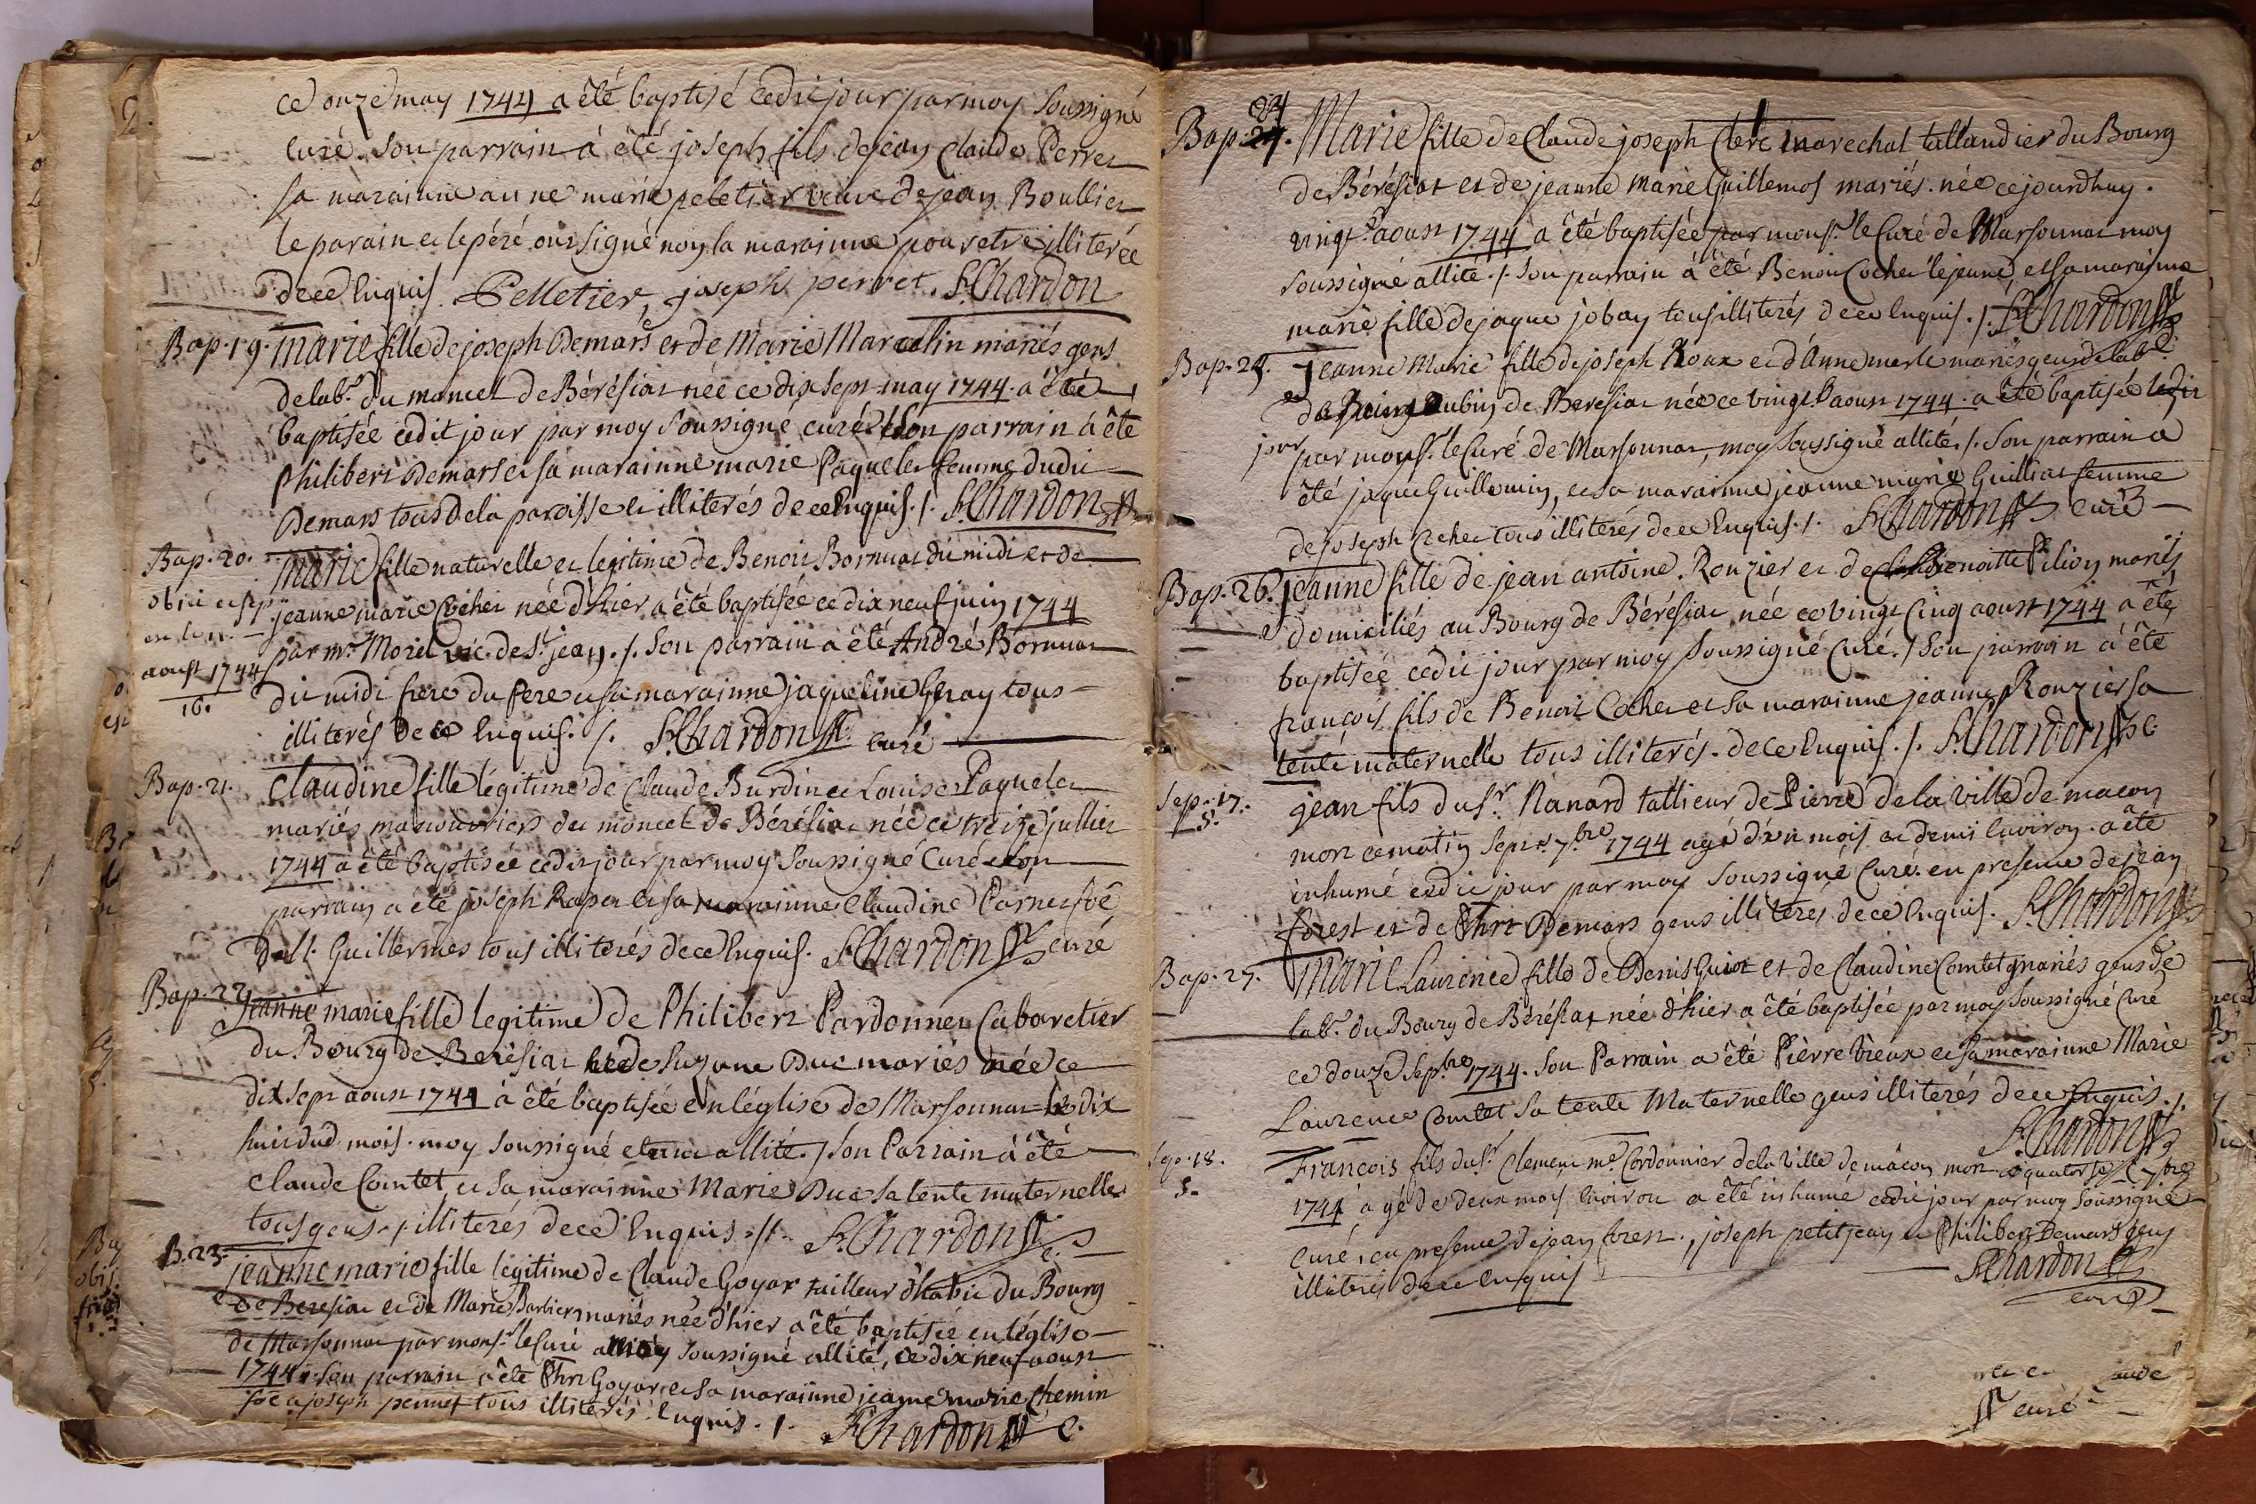 ce onze may 1744 a êté baptisé cedit jour par moy soussigné
curé. son parrain à êté joseph fils de jean Claude Perret
sa marainne anne marie peletier veuve de jean Boullier
le parain et le péré ont signé non la marainne pour etre illiterée
de ce Enquis. Pelletier, joseph perret. F. Chardon
Bap. 19. marie fille de joseph Demars et de Marie Marcelin mariés gens
de labr. du moncel de Bérésiat née ce dix sept may 1744. a êté
baptisée cedit jour par moy soussigné curé. / son parrain à êté
Philibert Demars et sa marainne marie Paquelet femme dudit
Demars tous de la paroisse et illiterés de ce Enquis. /. F. Chardon
Bap. 20. marie fille naturelle et legitime de Benoit Bornuat du midi et de
obiit et sep
jeanne marie Cochet née d'hier a êté baptisée ce dix neuf juin 1744
par mr. Morel vic. de St. jean. /. son parrain a êté André Bornuat
aoust 1744
16.
du midi frere du pere et sa marainne jaqueline Geray tous
illiterés de ce Enquis. /. F. Chardon curé
Bap. 21. Claudine fille légitime de Claude Burdin et Louise Paquelet
mariés manouvriers du moncel de Bérésiat née ce treize jullier
1744 a êté baptisée cedit jour par moy soussigné Curé et son
parrain a êté joseph Rapet et sa marainne Claudine Parnet fe
de Guillermes tous illiterés de ce Enquis. F. Chardon curé
Bap. 22. jeanne marie fille legitime de Philibert Pardonnet Cabaretier
du Bourg de Berésiat et de Suzane Duc mariés née ce
dix sept aoust 1744 à êté baptisée en l'église de Marsonnat le dix
huit dud. mois. moy soussigné etant allité. / son Parrain à êté
Claude Comtet et sa marainne Marie Duc sa tente maternelle
tous gens illiterés de ce Enquis. /. F. Chardon c.
B. 23. jeanne marie fille légitime de Claude Goyat tailleur d'habit du Bourg
de Beresiat et de Marie Barbier mariés née d'hier a êté baptisée en l'église
de Marsonnat par monsr. le Curé moy soussigné allité, ce dix neuf aoust
1744. son parrain a êté Phrt Goyat et sa marainne jeanne marie Chemin
fe a joseph perret tous illiterés Enquis. /. F. Chardon c.
Bap. 24. Marie fille de Claude joseph Clerc marechal tallandier du Bourg
de Bérésiat et de jeanne marie Guillemos mariés. née ce jourdhuy.
vingt. aoust 1744 a êté baptisée par monsr. le Curé de Marsonnat moy
soussigné allité. /. son parrain à êté Benoit Cochet le jeune et sa marainne
marie fille de jaque jobay tous illiterés de ce Enquis. /. F. Chardon
Bap. 25. jeanne Marie fille de joseph Roux et d'Anne merle mariés gens de labr.
Aubin de Beresiat née ce vingt aoust 1744. a êté baptisée ledit
jour par monsr. le Curé de Marsonnat, moy soussigné allité. /. son parrain a
êté jaque Guillemin, et sa marainne jeanne marie Guilliat femme
de joseph Cochet tous illiterés de ce Enquis. /. F. Chardon curé
Bap. 26. jeanne fille de jean antoine Rouzier et de Benoitte Pilion mariés
domiciliés au Bourg de Bérésiat née ce vingt Cinq aoust 1744 a êté
baptisée cedit jour par moy soussigné Curé. / son parrain à êté
françois fils de Benoit Cochet et sa marainne jeanne Rouzier sa
tente maternelle tous illiterés. de ce Enquis. /. F. Chardon c.
Sep. 17.
5.
jean fils du sr. Nanard tallieur de Pierre de la ville de macon
mort ce matin sept 7bre 1744 agé d'un mois et demi Environ. a êté
inhumé cedit jour par moy soussigné Curé. en presence de jean
forest et de Phrt Demars gens illiterés de ce Enquis. F. Chardon
Bap. 27. Marie Laurence fille de Denis Guiot et de Claudine Comtet mariés gens de
labr. du Bourg de Bérésiat née d'hier a êté baptisée par moy soussigné Curé
ce douze Septbre 1744. son Parrain a êté Pièrre Vieux et sa marainne Marie
Laurence Comtet sa tente Maternelle gens illiterés de ce Enquis. /.
F. Chardon
Sep. 18.
5.
François fils du sr. Clement me. Cordonnier de la ville de mâcon mort ce quatorze 7bre
1744 agé de deux mois Environ a êté inhumé cedit jour par moy soussigné
Curé, en presence de jean forest, joseph petitjean et Philibert Demars gens
illitérés de ce Enquis F. Chardon
curé
curé